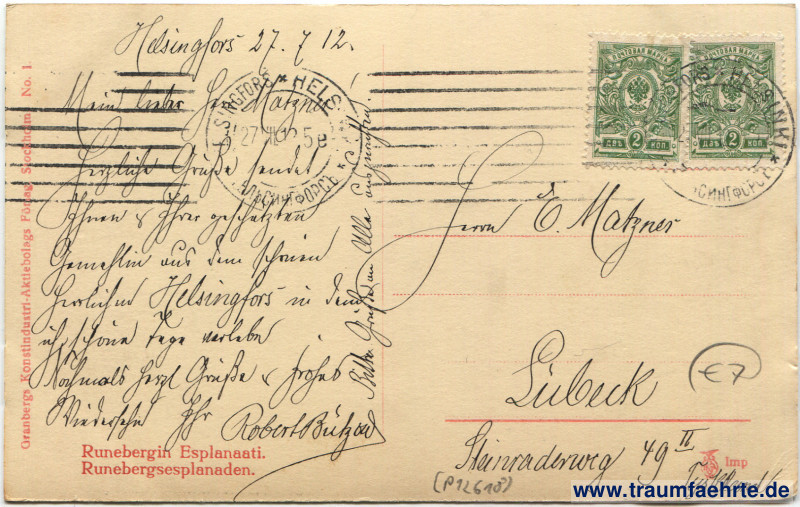 Helsingfors 27.7.12.
Mein lieber Herr Matzner!
Herzliche Grüße sendet
Ihnen & Ihrer geschätzten
Gemahlin aus dem schönen
herrlichen Helsingfors in dem
ich schöne Tage verlebe
Nochmals herzl Grüße & frohes
Wiedersehn Ihr
Robert Bützow
Bitte Grüße an Alla auszurichten.
Runebergin Esplanaati.
Runebergsesplanaden.
Granbergs Konstindustri-Aktiebolags Förlag Stockholm No. 1
ПОЧТОВАЯ МАРКА
ДВѢ 2 КОП.
ПОЧТОВАЯ МАРКА
ДВѢ 2 КОП.
HELSINGFORS * HELSINKI
27.VII.12. 5 e
ГЕЛЬСИНГФОРСЪ *
Herrn E. Matzner
Lübeck
Steinraderweg 49 II
Imp
€7
(P12618)
www.traumfaehrte.de